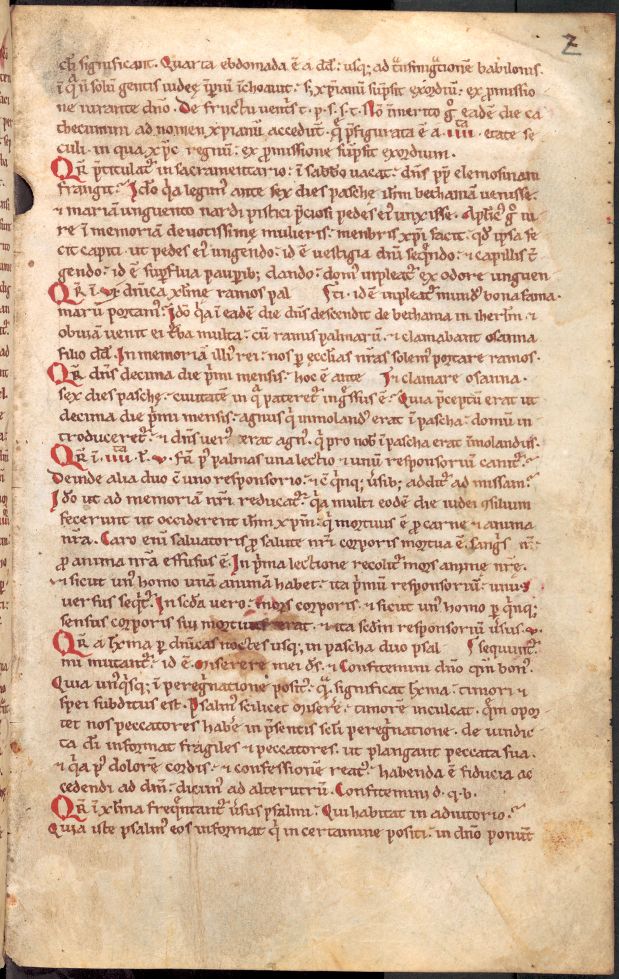 2
chī significant. Quarta ebdomada ē a dd̄. usq; ad tͣnsmigͣtionē babilonis.
ī qͣ n̄ solū gentis iudeę p̄piū īchoauit. s; xp̄ianū sūpsit exordiū. ex pͦmissio
ne iurante dn̄o. De fructu uentͥs t. p. s. s. t. Nō īmerito gͦ eadē die ca
thecumini ad nomen xp̄ianū accedūt. qͥ p̄figurata ē a .iiii.ta etate se
culi. in qua xp̄c regnū. ex pͦmissione sūpsit exordium.
Qr̄ p̄titulat᷑ in sacramentario. ī sabbo uacat. dn̄s pp̄ elemosinam
frangit. Ido qͥa legim᷒ ante sex dies pasche ih̄m bethaniā uenisse.
et mariā unguento nardi pistici pͥciosi pedes ei᷒ unxisse. Aplic᷒ gͦ ui
re ī memoriā deuotissimę mulieris. menbris xp̄i facit. qd̄ ipsa fe
cit capiti. ut pedes ei᷒ ungendo. id ē uestigia dn̄i seqͥndo. et capillis t̄
gendo. id ē supflua paupib; dando. dom᷒ īpleat᷑ ex odore unguen
ti. id ē inpleat᷑ mund᷒ bona fama.
Qr̄ ī .vi. dn̄ica xl.me ramos pal
marū portam᷒. Ido qͥa ī eadē die dn̄s descendit de bethania in ih̄erlm̄. et
obuiā uenit ei tͬba multa. cū ramis palmarū. et clamabant osanna
filio dd̄. In memoriā illi᷒ rei. nos p ecclias nr̄as solem᷒ portare ramos.
et clamare osanna.
Qr̄ dn̄s decima die pͥmi mensis. hoc ē ante
sex dies paschę. ciuitatē in qͣ pateret᷑ ingͬssus ē. Quia p̄ceptū erat ut
decima die pͥmi mensis. agnus qͥ inmoland᷒ erat ī pascha. domū in
troduceret᷑. et dn̄s uer᷒ erat agn᷒. qͥ pro nob̄ ī pascha erat īmolandus.
Qr̄ ī .iiii.ta f. v. fͥa pͦ palmas una lectio et unū responsoriū canit᷑.
Deinde alia duo cē uno responsorio. et cē qͥnq; ūsib; addit᷑ ad missam.
Ido ut ad memoriā nr̄i reducat᷑. qͥa multi eodē die iudei ꝯsilium
fecerunt ut occiderent ih̄m xp̄m. qͥ mortuus ē pͦ carne et anima
nr̄a. Caro eni saluatoris pͦ salute nr̄i corporis mortua ē. sangͥs n̄.
pͦ anima nr̄a effusus ē. In pͥma lectione recolit᷑ mors animę nr̄ę.
et sicut un᷒ homo unā animā habet. ita pͥmū responsoriū. unus
uersus seqͥt᷑. In scd̄a uero. mors corporis. et sicut un᷒ homo p qͥnq;
sensus corporis sui mortuus erat. et ita scd̄m responsoriū ūsus .v.
sequunt᷑.
Qr̄ a lxx.ma p dn̄icas noctes usq; in pascha duo psal
mi mutant᷑. id ē. Miserere mei ds̄. et Confitemini dn̄o qm̄ bon᷒.
Quia un᷒qͥsq; ī peregͥnatione posit᷒. qͣ significat lxx.ma. timori et
spei subditus est. Psalm᷒ scilicet Misere. timorē inculcat. qͦm opor
tet nos peccatores habere in p̄sentis sclī peregͥnatione. de uindic
ta dī. informat fragiles et peccatores. ut plangant peccata sua.
et qͥa pͦ dolorē cordis. et confessionē reat᷒. habenda ē fiducia ac
cedendi ad dm̄. dicim᷒ ad alterutrū. Confitemini d. q. b.
Qr̄ ī xl.ma freqͥntant᷑ ūsus psalmi. Qui habitat in adiutorio.
Quia iste psalm᷒ eos informat qͥ in certamine positi. in dn̄o ponunt